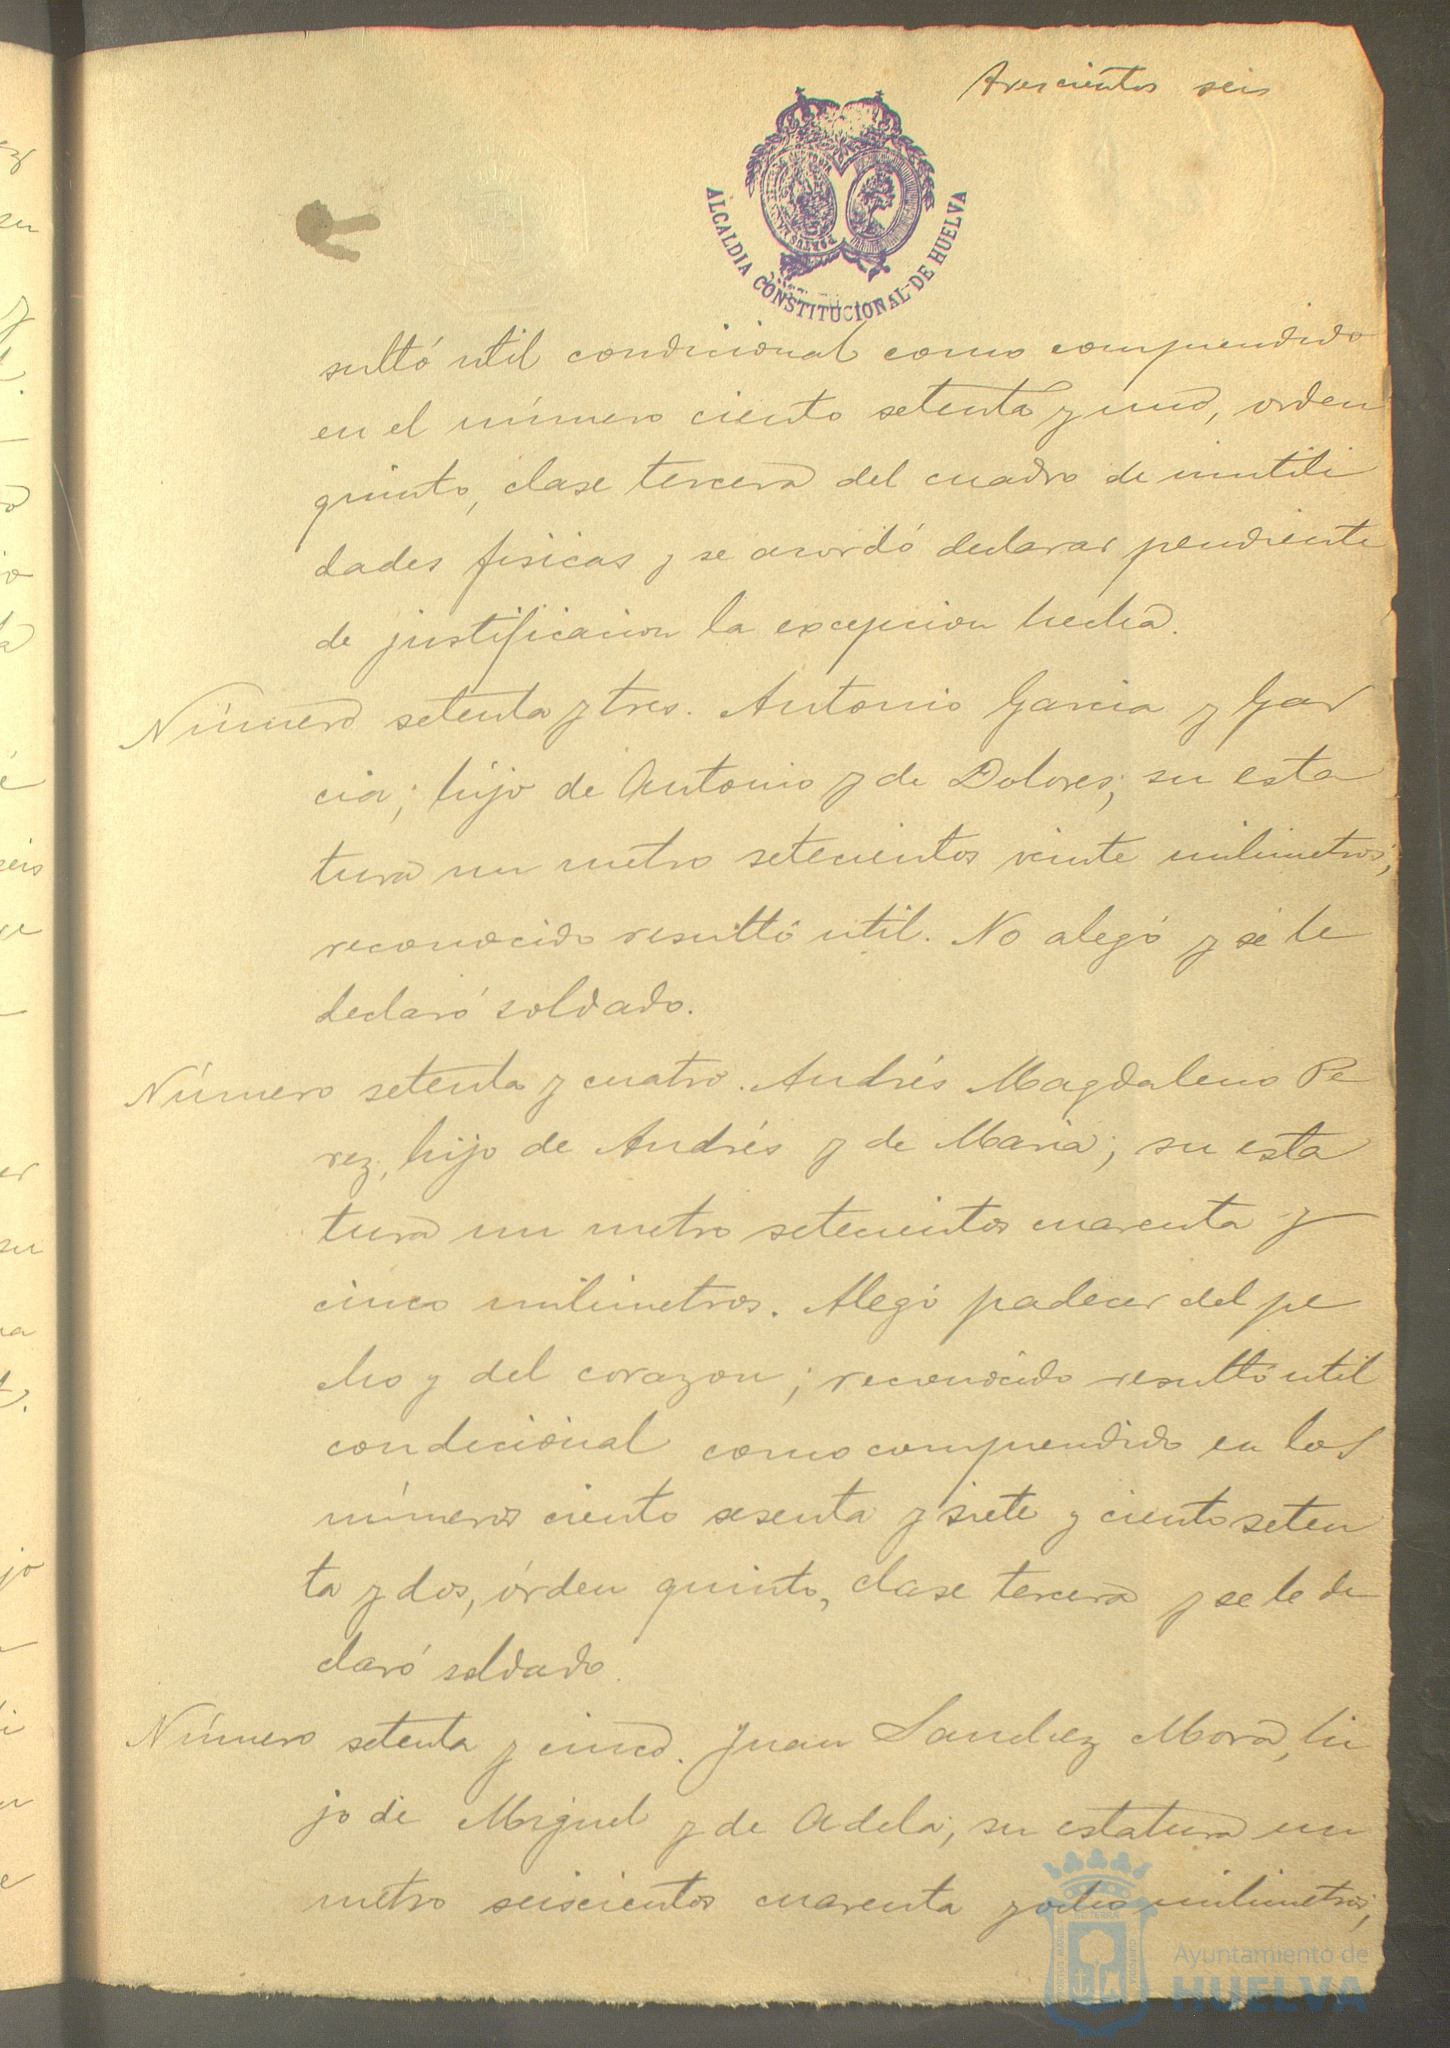 trescientos seis
ALCALDIA CONSTITUCIONAL DE HUELVA
sultó util condicional como comprendido
en el número ciento setenta y uno, orden
quinto, clase tercera del cuadro de inutili
dades fisicas y se acordó declarar pendiente
de justificacion la excepcion hecha.
Número setenta y tres. Antonio Garcia y Gar
cia; hijo de Antonio y de Dolores; su esta
tura un metro setecientos veinte milimetros;
reconocido resultó util. No alegó y se le
declaró soldado.
Número setenta y cuatro. Andrés Magdaleno Pe
rez, hijo de Andrés y de Maria; su esta
tura un metro setecientos cuarenta y
cinco milimetros. Alegó padecer del pe
cho y del corazon; reconocido resultó util
condicional como comprendido en los
números ciento sesenta y siete y ciento seten
ta y dos, órden quinto, clase tercera y se le de
claró soldado.
Número setenta y cinco. Juan Sanchez Mora, hi
jo de Miguel y de Adela; su estatura un
metro seiscientos cuarenta y ocho milimetros;
Ayuntamiento de
HUELVA